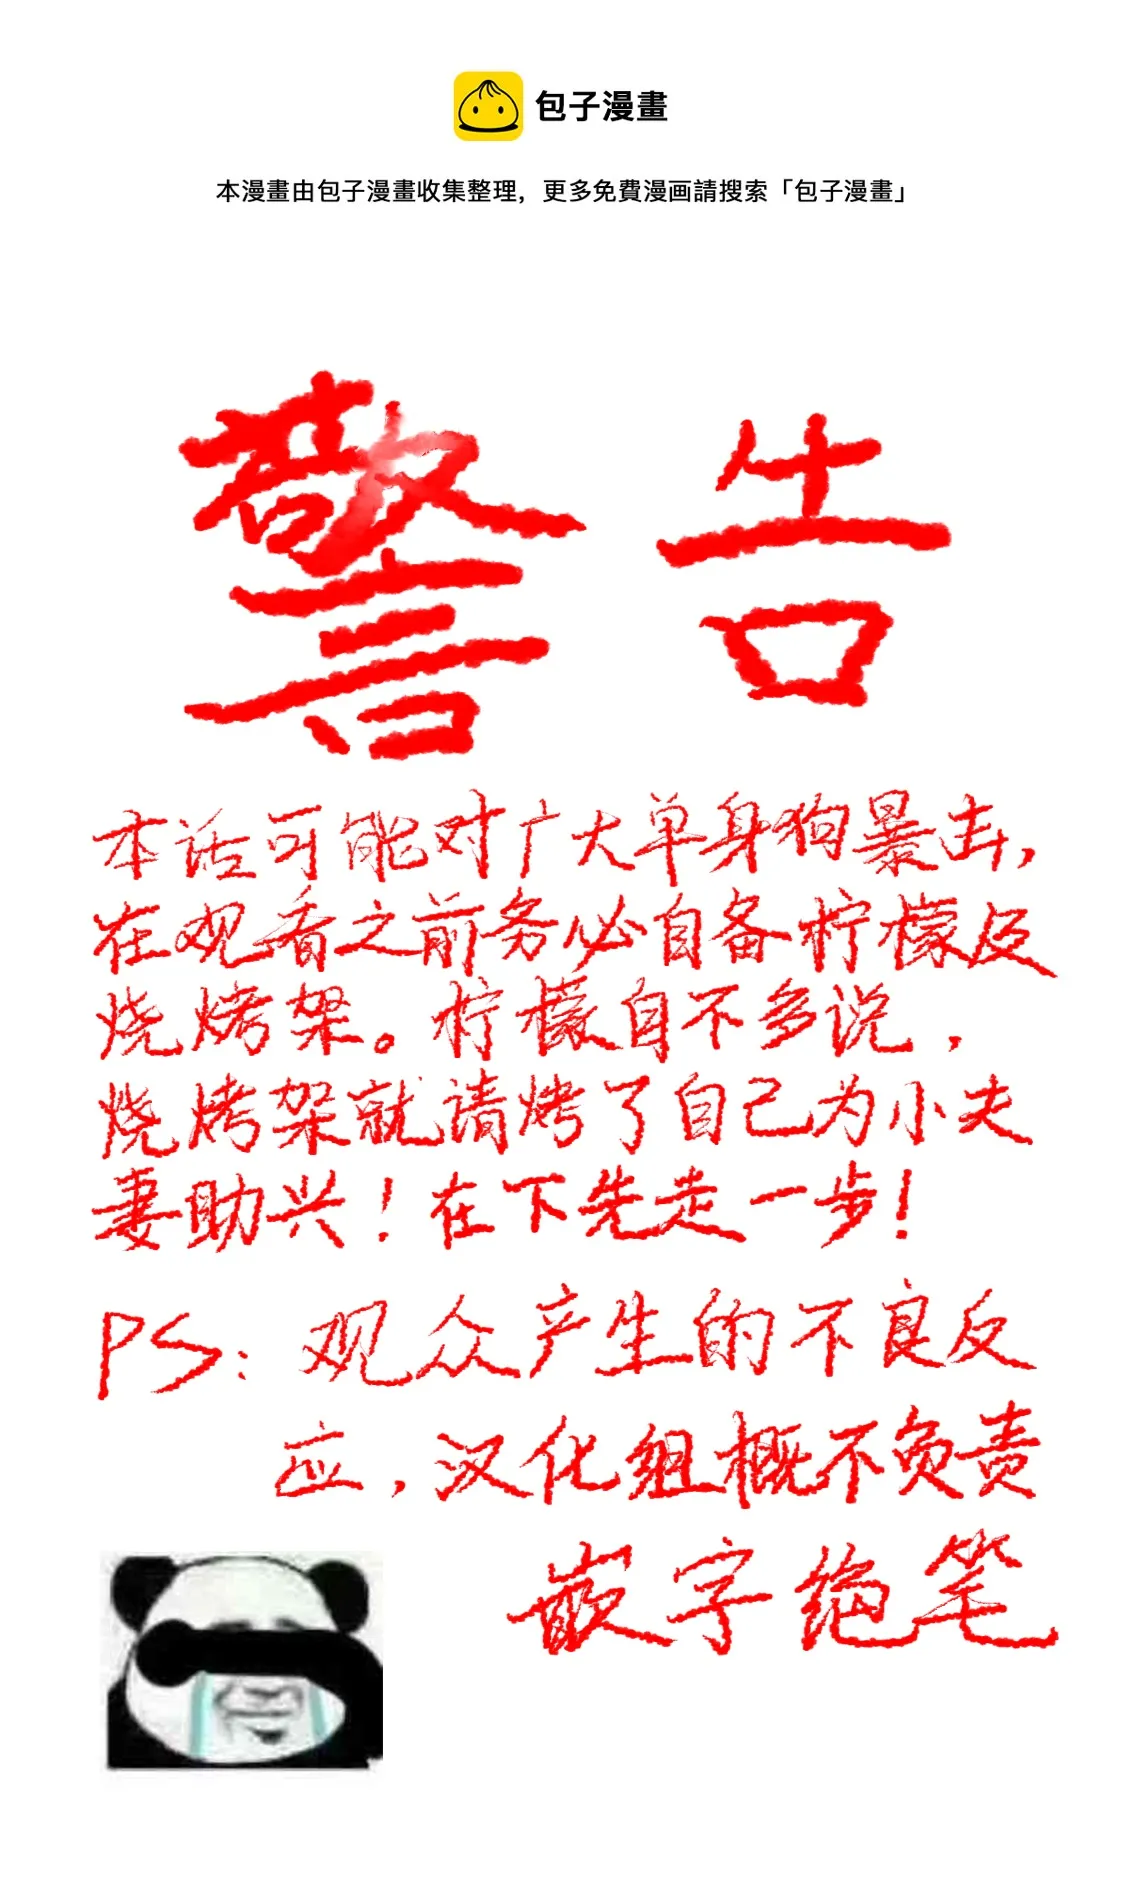 包子漫畫
本漫畫由包子漫畫收集整理，更多免費漫画請搜索「包子漫畫」
警告
本话可能对广大单身狗暴击，
在观看之前务必自备柠檬及
烧烤架。柠檬自不多说，
烧烤架就请烤了自己为小夫
妻助兴！在下先走一步！
PS：观众产生的不良反
应，汉化组概不负责
嵌字绝笔